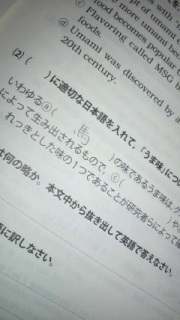 pt of umami
ood becomes popular
c Flavoring called MSG
foods.
d Umami was discovered by a
20th century.
(2) (　　)に適切な日本語を入れて,「うま味」につ
いわゆるⓐ(　　)や
ⓒ(　　)の味であるうま味は,
によって生み出されるもので,
れっきとした味の1つであることが研究者らによって
は何の略か。本文中から抜き出して英語で答えなさい。
に訳しなさい。